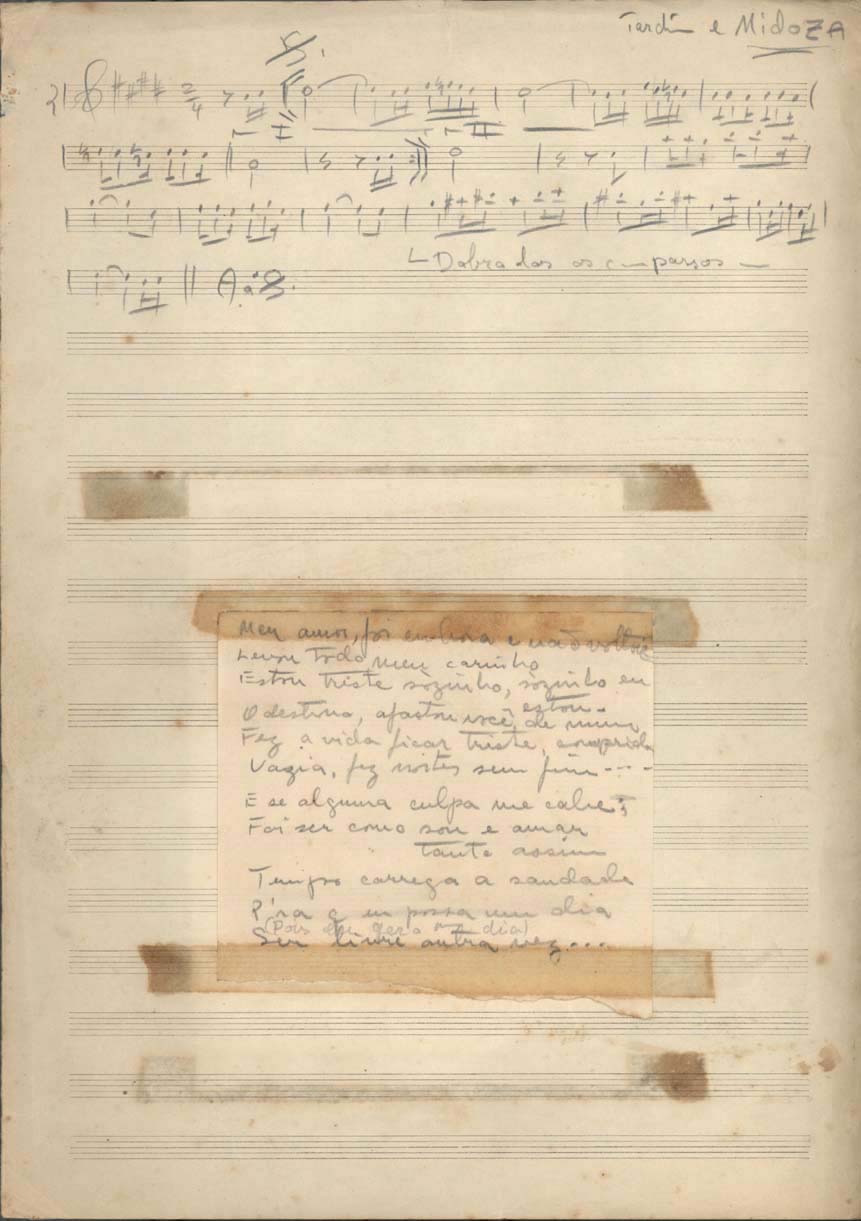 Tardin e MidoZA
2/4
I
II
Dobrados os compassos
A. a S.
Meu amor, foi embora e não voltou
Levou todo meu carinho
Estou triste sòzinho, sòzinho eu
estou.
O destino, afastou você, de mim
Fez a vida ficar triste, comprida
Vazia, fez noites sem fim ----
E se alguma culpa me cabe,
Foi ser como sou e amar
tanto assim
Tempo carrega a saudade
P'ra q eu possa um dia
(Pois eu quero um dia)
Ser livre outra vez....